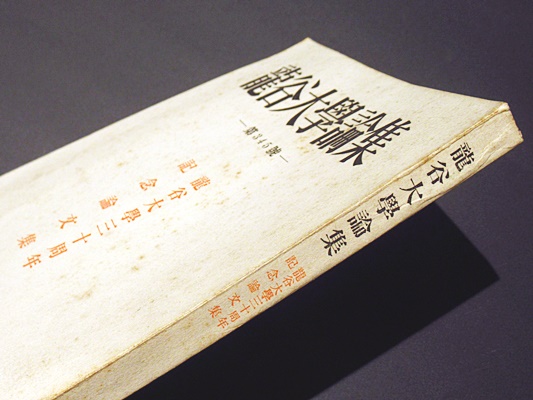 龍谷大學論集
—第345號—
龍谷大學三十周年
記念論文集
龍谷大學論集
龍谷大學三十周年
記念論文集